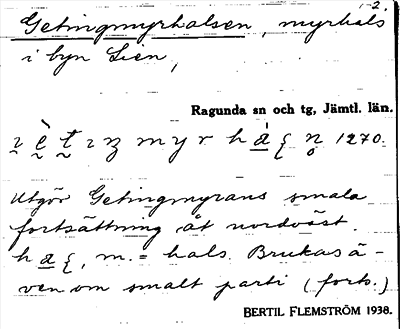 1-2.
Getingmyrhalsen, myrhals
i byn Lien,
Ragunda sn och tg, Jämtl. län.
1270.
Utgör Getingmyrans smala
fortsättning åt nordväst.
m. = hals. Brukas ä-
ven om smalt parti (forts.)
BERTIL FLEMSTRÖM 1938.